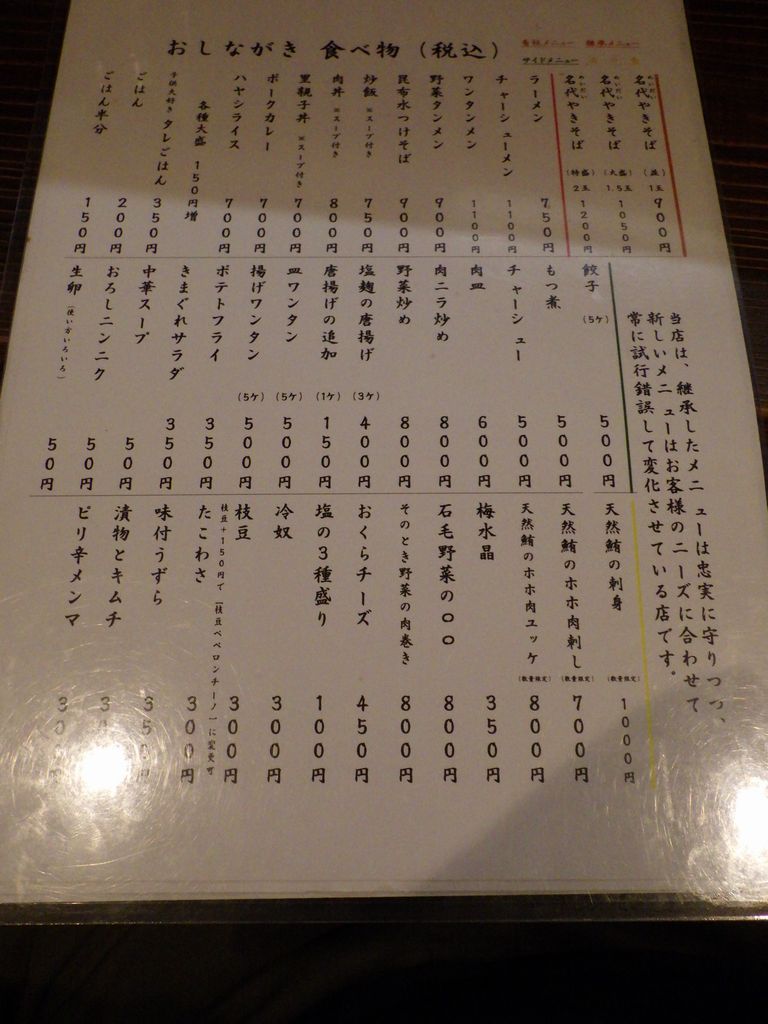 おしながき 食べ物 (税込)
サイドメニュー
名代やきそば (並) 1玉 900円
名代やきそば (大盛) 1.5玉 1050円
名代やきそば (特盛) 2玉 1200円
ラーメン 750円
チャーシューメン 1100円
ワンタンメン 1100円
野菜タンメン 900円
昆布水つけそば 900円
炒飯 ※スープ付き 750円
肉丼 ※スープ付き 800円
里親子丼 ※スープ付き 700円
ポークカレー 700円
ハヤシライス 700円
各種大盛 150円増
子供大好き タレごはん 350円
ごはん 200円
ごはん半分 150円
当店は、継承したメニューは忠実に守りつつ、
新しいメニューはお客様のニーズに合わせて
常に試行錯誤して変化させている店です。
餃子 (5ケ) 500円
もつ煮 500円
チャーシュー 500円
肉皿 600円
肉ニラ炒め 800円
野菜炒め 800円
塩麹の唐揚げ (3ケ) 400円
唐揚げの追加 (1ケ) 150円
皿ワンタン (5ケ) 500円
揚げワンタン (5ケ) 500円
ポテトフライ 350円
きまぐれサラダ 350円
中華スープ 50円
おろしニンニク 50円
生卵 (使い方いろいろ) 50円
天然鮪の刺身 (数量限定) 1000円
天然鮪のホホ肉刺し (数量限定) 700円
天然鮪のホホ肉ユッケ (数量限定) 800円
梅水晶 350円
石毛野菜の〇〇 800円
そのとき野菜の肉巻き 800円
おくらチーズ 450円
塩の3種盛り 100円
冷奴 300円
枝豆 300円
枝豆+150円で「枝豆ペペロンチーノ」に変更可
たこわさ 300円
味付うずら 350円
漬物とキムチ
ピリ辛メンマ 300円